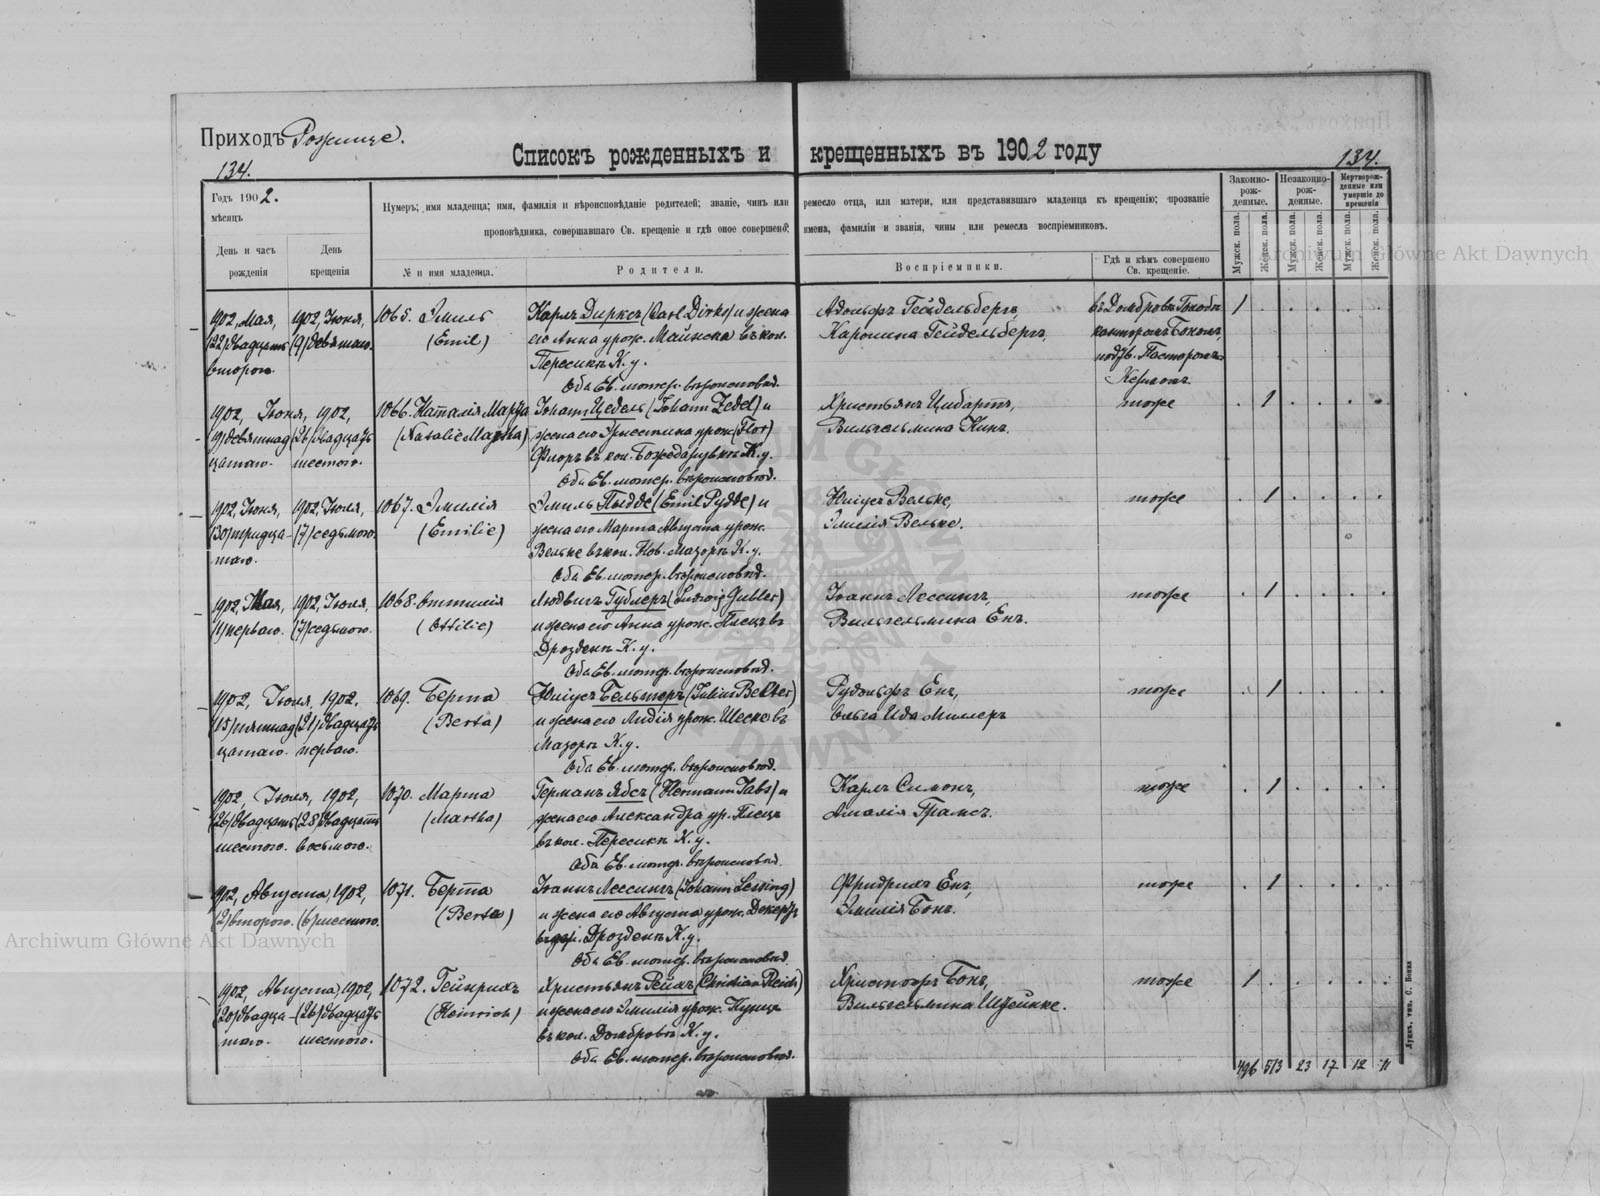 Приходъ Рожище.
134.
Списокъ рожденныхъ и крещенныхъ въ 1902 году
134.
Годъ 1902.
мѣсяцъ
День и часъ рожденія
День крещенія
Нумеръ; имя младенца; имя, фамилія и вѣроисповѣданіе родителей; званіе, чинъ или ремесло отца, или матери, или представившаго младенца къ крещенію; прозваніе
проповѣдника, совершавшаго Св. крещеніе и гдѣ оное совершено; имена, фамиліи и званія, чины или ремесла воспріемниковъ.
№ и имя младенца.
Родители.
Воспріемники.
Гдѣ и кѣмъ совершено Св. крещеніе.
Законно-рож-денные.
Незаконно-рож-денные.
Мертворож-денные или умершіе до крещенія
Мужск. пола.
Женск. пола.
Мужск. пола.
Женск. пола.
Мужск. пола.
Женск. пола.
1902, Мая, (22) двадцать втораго.
1902, Іюня, (9) девятаго.
1065. Эмиль (Emil)
Карлъ Дирксъ (Carl Dirks) и жена
его Анна урож. Майнска въ кол.
Пересикъ К. у.
Оба Ев. лютер. вѣроисповѣд.
Адольфъ Гейдельбергъ,
Каролина Гейдельбергъ.
1
1902, Іюня, (19) девятнад цатаго.
1902, (26) двадцать шестого.
1066. Наталія Марта (Natalie Martha)
Іоганъ Цедель (Johann Zedel) и
жена его Эрнестина урож. (Flor)
Флоръ въ кол. Божедаровкѣ К. у.
Оба Ев. лютер. вѣроисповѣд.
Христьянъ Цибартъ,
Вильгельмина Кинъ.
тоже
1
1902, Іюня, (30) тридца-таго.
1902, Іюля, (7) седьмого.
1067. Эмилія (Emilie)
Эмиль Пыдде (Emil Pydde) и
жена его Марта Августа урож.
Вельке въ кол. Нов. Мазоръ К. у.
Оба Ев. лютер. вѣроисповѣд.
Юліусъ Вельке,
Эмилія Вельке.
тоже
1
1902, Мая, (1) перваго.
1902, Іюля, (7) седьмого.
1068. Оттилія (Ottilie)
Людвигъ Гублеръ (Ludwig Gubler)
и жена его Анна урож. Плецъ въ
Дрозденъ К. у.
Оба Ев. лютер. вѣроисповѣд.
Іоганъ Лессингъ,
Вильгельмина Енъ.
тоже
1
1902, Іюля, (15) пятнад цатаго.
1902. (21) двадцать перваго.
1069. Берта (Berta)
Юліусъ Бельтеръ (Julius Belter)
и жена его Лидія урож. Шеске въ
Мазоръ К. у.
Оба Ев. лютер. вѣроисповѣд.
Рудольфъ Енъ,
Ольга Ида Миллеръ
тоже
1
1902, Іюля, (26) двадцать шестого.
1902, (28) двадцать восьмого.
1070. Марта (Martha)
Германъ Ябсъ (Hermann Jabs) и
жена его Александра ур. Плецъ
въ кол. Пересикъ К. у.
Оба Ев. лютер. вѣроисповѣд.
Карлъ Симонъ,
Амалія Грамсъ.
тоже
1
1902, Августа, (2) второго.
1902, (6) шестого.
1071. Берта (Berta)
Іоганъ Лессингъ (Johann Lessing)
и жена его Августа урож. Декертъ
Дрозденъ К. у.
Оба Ев. лютер. вѣроисповѣд.
Фридрихъ Енъ,
Эмилія Бонъ.
тоже
1
1902, Августа, (20) двадца-таго.
1902, (26) двадцать шестого.
1072. Гейнрихъ (Heinrich)
Христьянъ Рейхъ (Christian Reich)
и жена его Эмилія урож. Кунцъ
въ кол. Домбровъ К. у.
Оба Ев. лютер. вѣроисповѣд.
Христофъ Бонъ,
Вильгельмина Штейнке.
тоже
1
496 513 23 17 12 11
Луцкъ, тип. С. Бонка
Archiwum Główne Akt Dawnych
Archiwum Główne Akt Dawnych